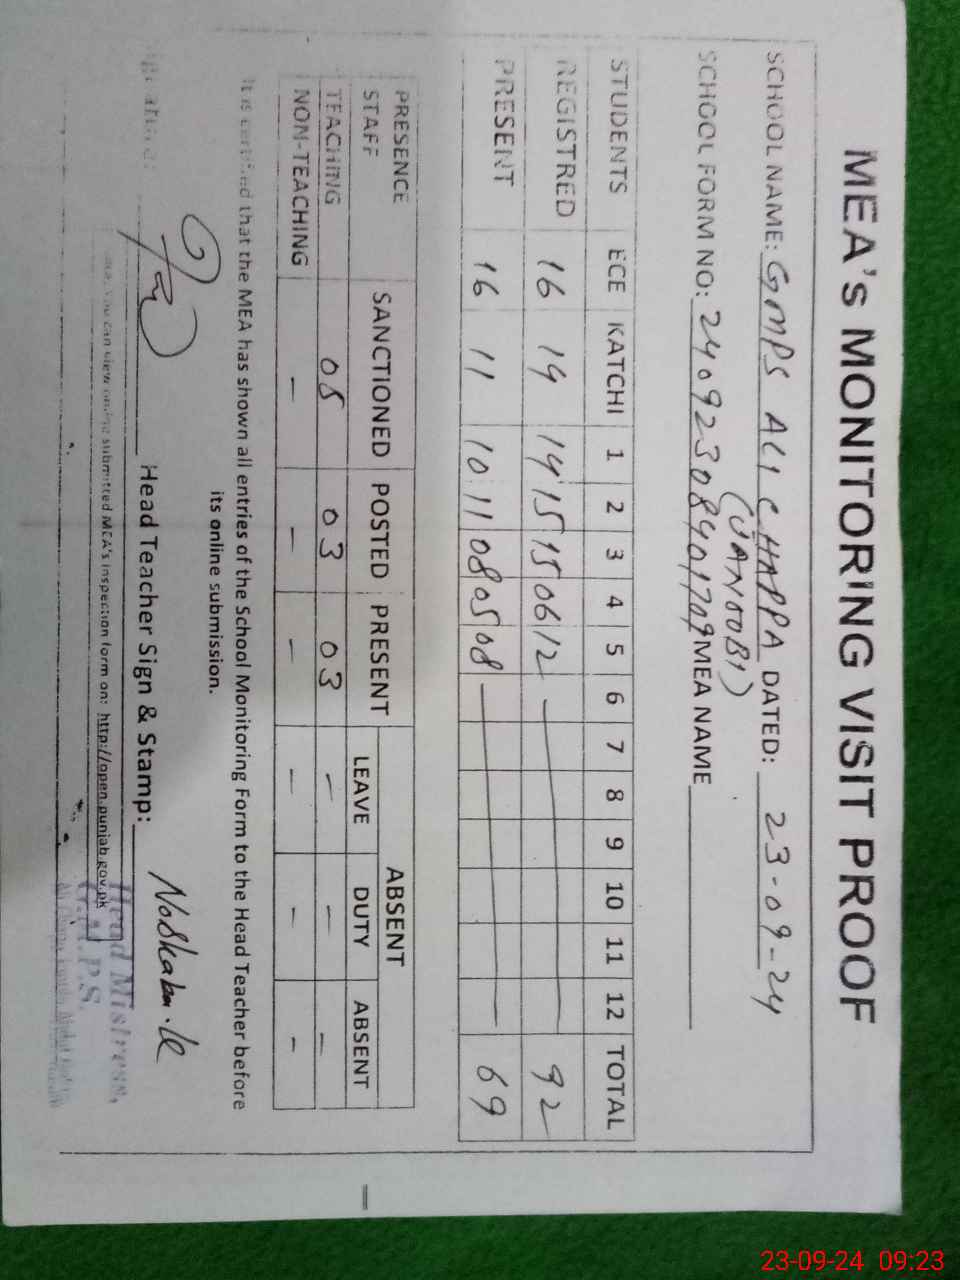 MEA's MONITORING VISIT PROOF
SCHOOL NAME: GMPS ALI CHAPPA DATED: 23-09-24
(JANOOBI)
SCHOOL FORM NO: 24092308401709 MEA NAME
STUDENTS ECE KATCHI 1 2 3 4 5 6 7 8 9 10 11 12 TOTAL
REGISTRED 16 14 14 15 15 06 12 — 92
PRESENT 16 11 10 11 08 05 08 — 69
PRESENCE ABSENT
STAFF SANCTIONED POSTED PRESENT LEAVE DUTY ABSENT
TEACHING 05 03 03 — — —
NON-TEACHING — — — — — —
It is certified that the MEA has shown all entries of the School Monitoring Form to the Head Teacher before
its online submission.
Head Teacher Sign & Stamp:
you can view online submitted MEA's inspection form on: http://open.punjab.gov.pk
Head Mistress,
G.M.P.S.
23-09-24 09:23